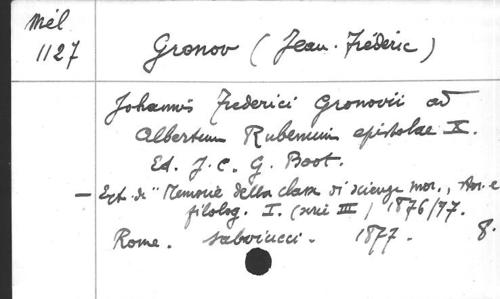 Mél
1127
Gronov (Jean-Fréderic)
Johannis Frederici Gronovii ad
Albertum Rubenium epistolae X.
Ed. J. C. G. Boot.
— Ext. di "Memorie della classe di scienze mor., stor. e
filolog. I. (serie III) 1876/77.
Rome. Salviucci. 1877. 8.